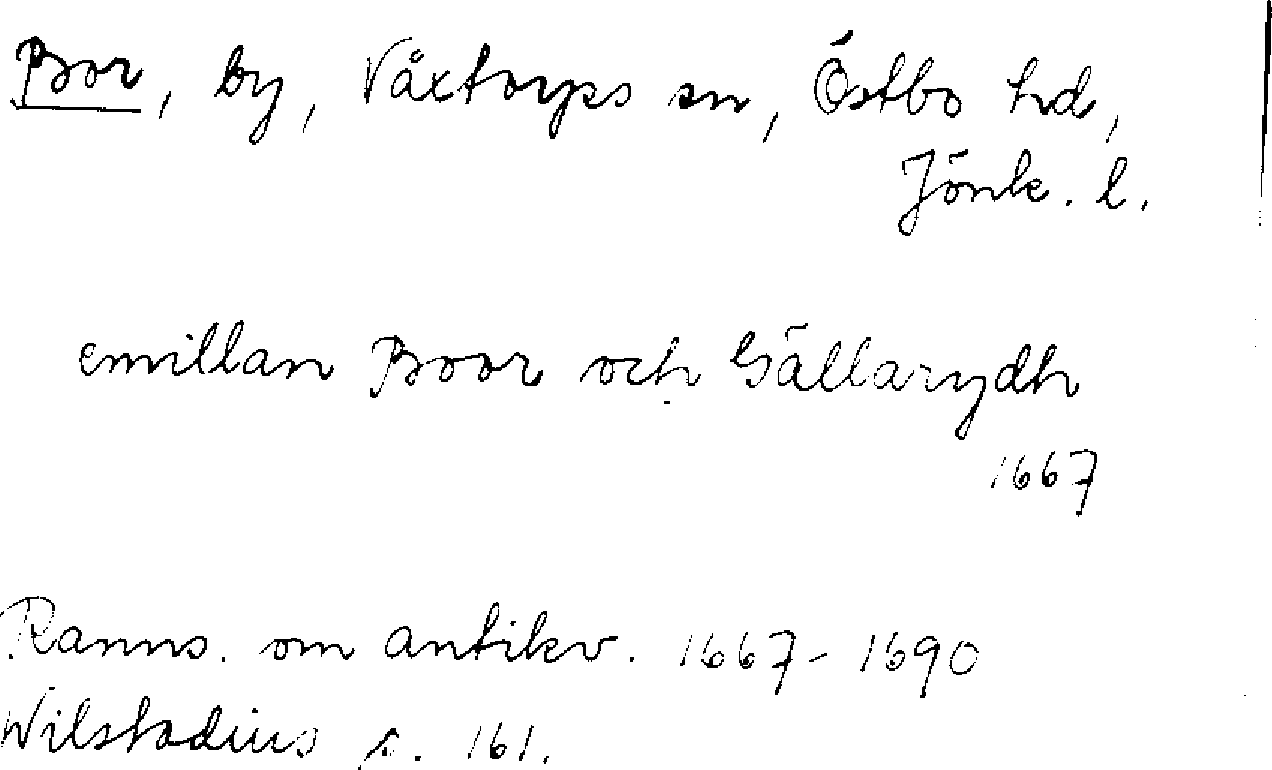 Bor, by, Våxtorps sn, Östbo hd,
Jönk. l.
emillan Boor och Gällarydh
1667
Ranns. om antikv. 1667-1690
Wilstadius s. 161.